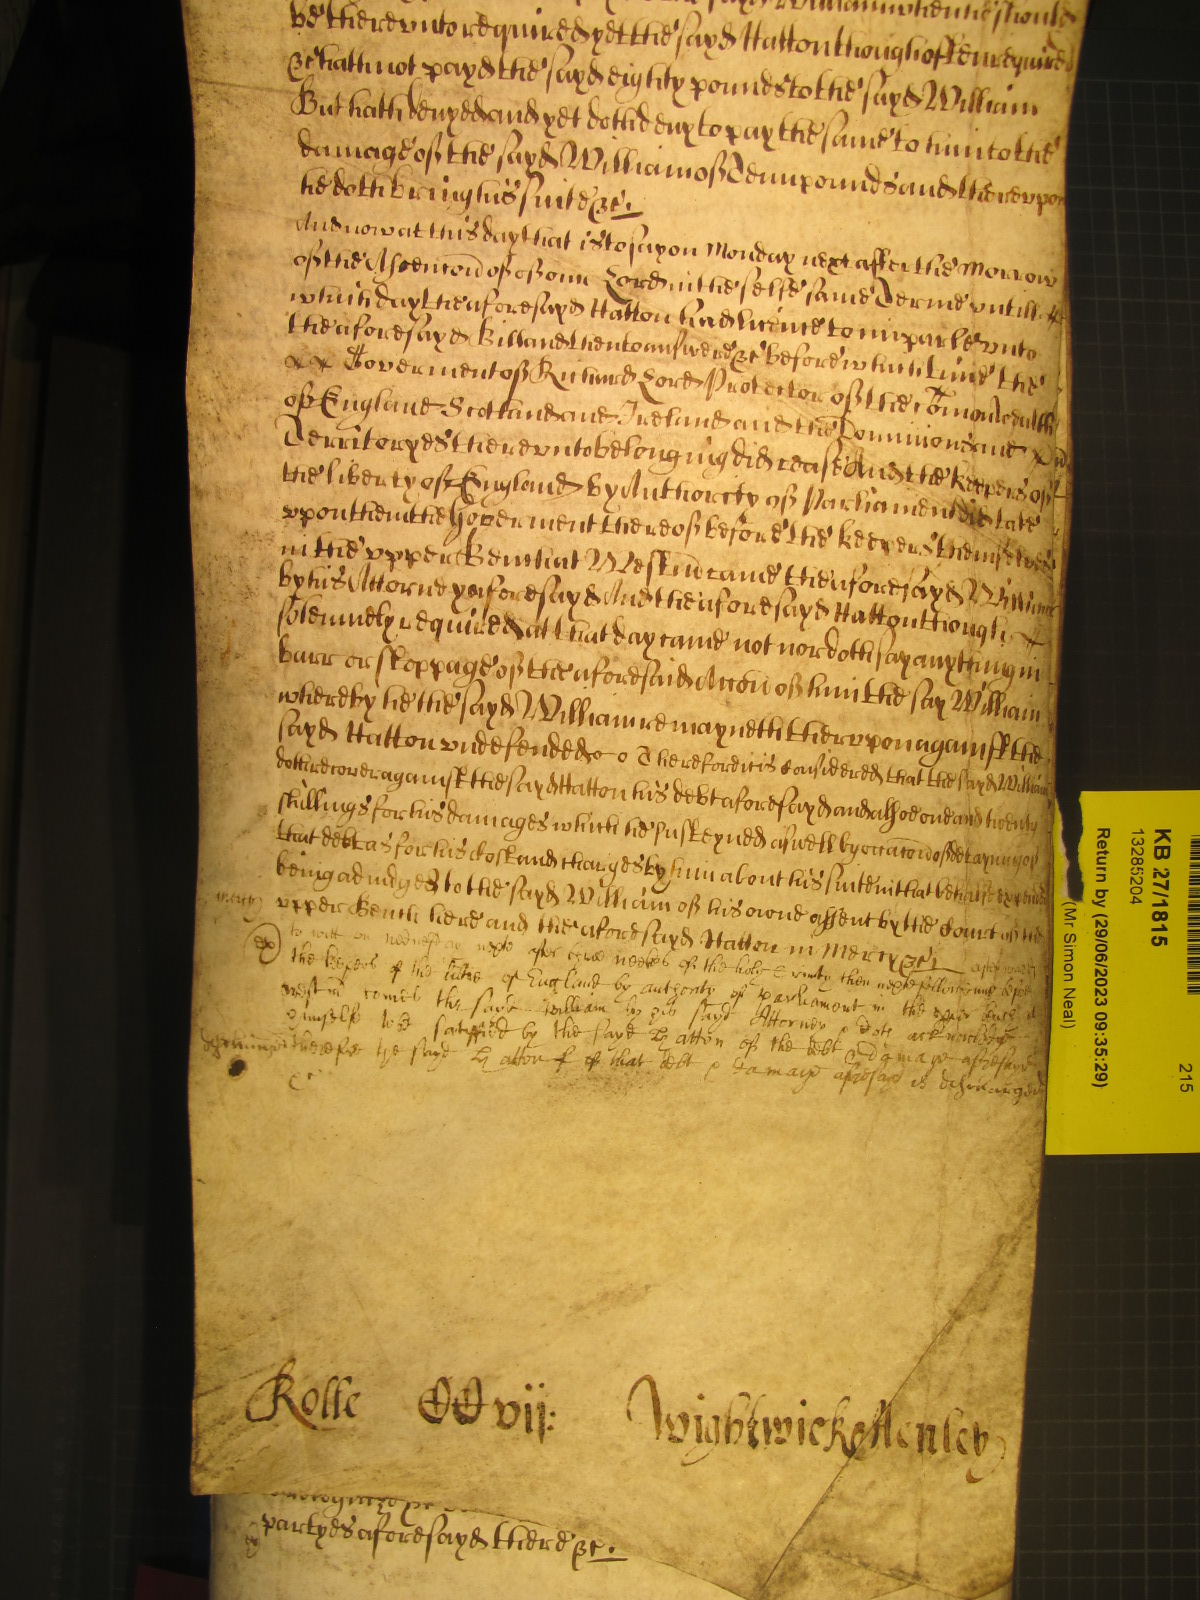 sayd William when he should
be thereunto required yet the sayd Hatton though often required
&c hath not payd the sayd eighty pounds to the sayd William
But hath denyed and yet doth deny to pay the same to him to the
damage of the sayd William of Tenn pounds and thereupon
he doth bring his suite &c.
And now at this day that is to say on Monday next after the Morrow
of the Ascencõn of our Lord in the selfe same Terme untill
which day the aforesayd Hatton had licence to imparle unto
the aforesayd Bill and then to answere &c before which time the
Goverment of Richard Lord Protector of the Cõmonwealth
of England Scotland and Ireland and the Dominions and
Territoryes thereunto belonging did cease And the keepers of
the liberty of England by Authority of Parliament did take
upon them the Goverment thereof before the keepers themselves
in the upper Bench at Westm̃ came the aforesayd William
by his Attorney aforesayd And the aforesayd Hatton though
solemnely required at that day came not nor doth say any thing in
barr or stoppage of the aforesaid Accõn of him the say William
whereby he the sayd William remayneth therupon against the
sayd Hatton undefended Therefore it is considered that the sayd William
doth recover against the sayd Hatton his debt aforesayd and alsoe one and twenty
shillings for his damages which he susteyned aswell by occacõn of detayning of
that debt as for his Cost and charges by him about his suite in that behalfe expended
being adiudged to the sayd William of his owne assent by the Court of the
upper Bench here and the aforesayd Hatton in Mercy &c afterwards
mercy
to witt on Wednesday next after three weekes of the holy Trinity then next following before
the keepers of the libtie of England by authority of parliament in the upper bench at
westm̃ comes the sayd William by his sayd Attorney & doth acknowledge
himselfe to be satisfied by the sayd Hatton of the debt & damage aforesayd
Therefore the sayd Hatton of that debt & damage aforesayd is dischargd
&c
Rolle CCvij: Wightwicke Henley
partyes aforesayd there &c.
KB 27/1815
215
13285204
Return by (29/06/2023 09:35:29)
(Mr Simon Neal)